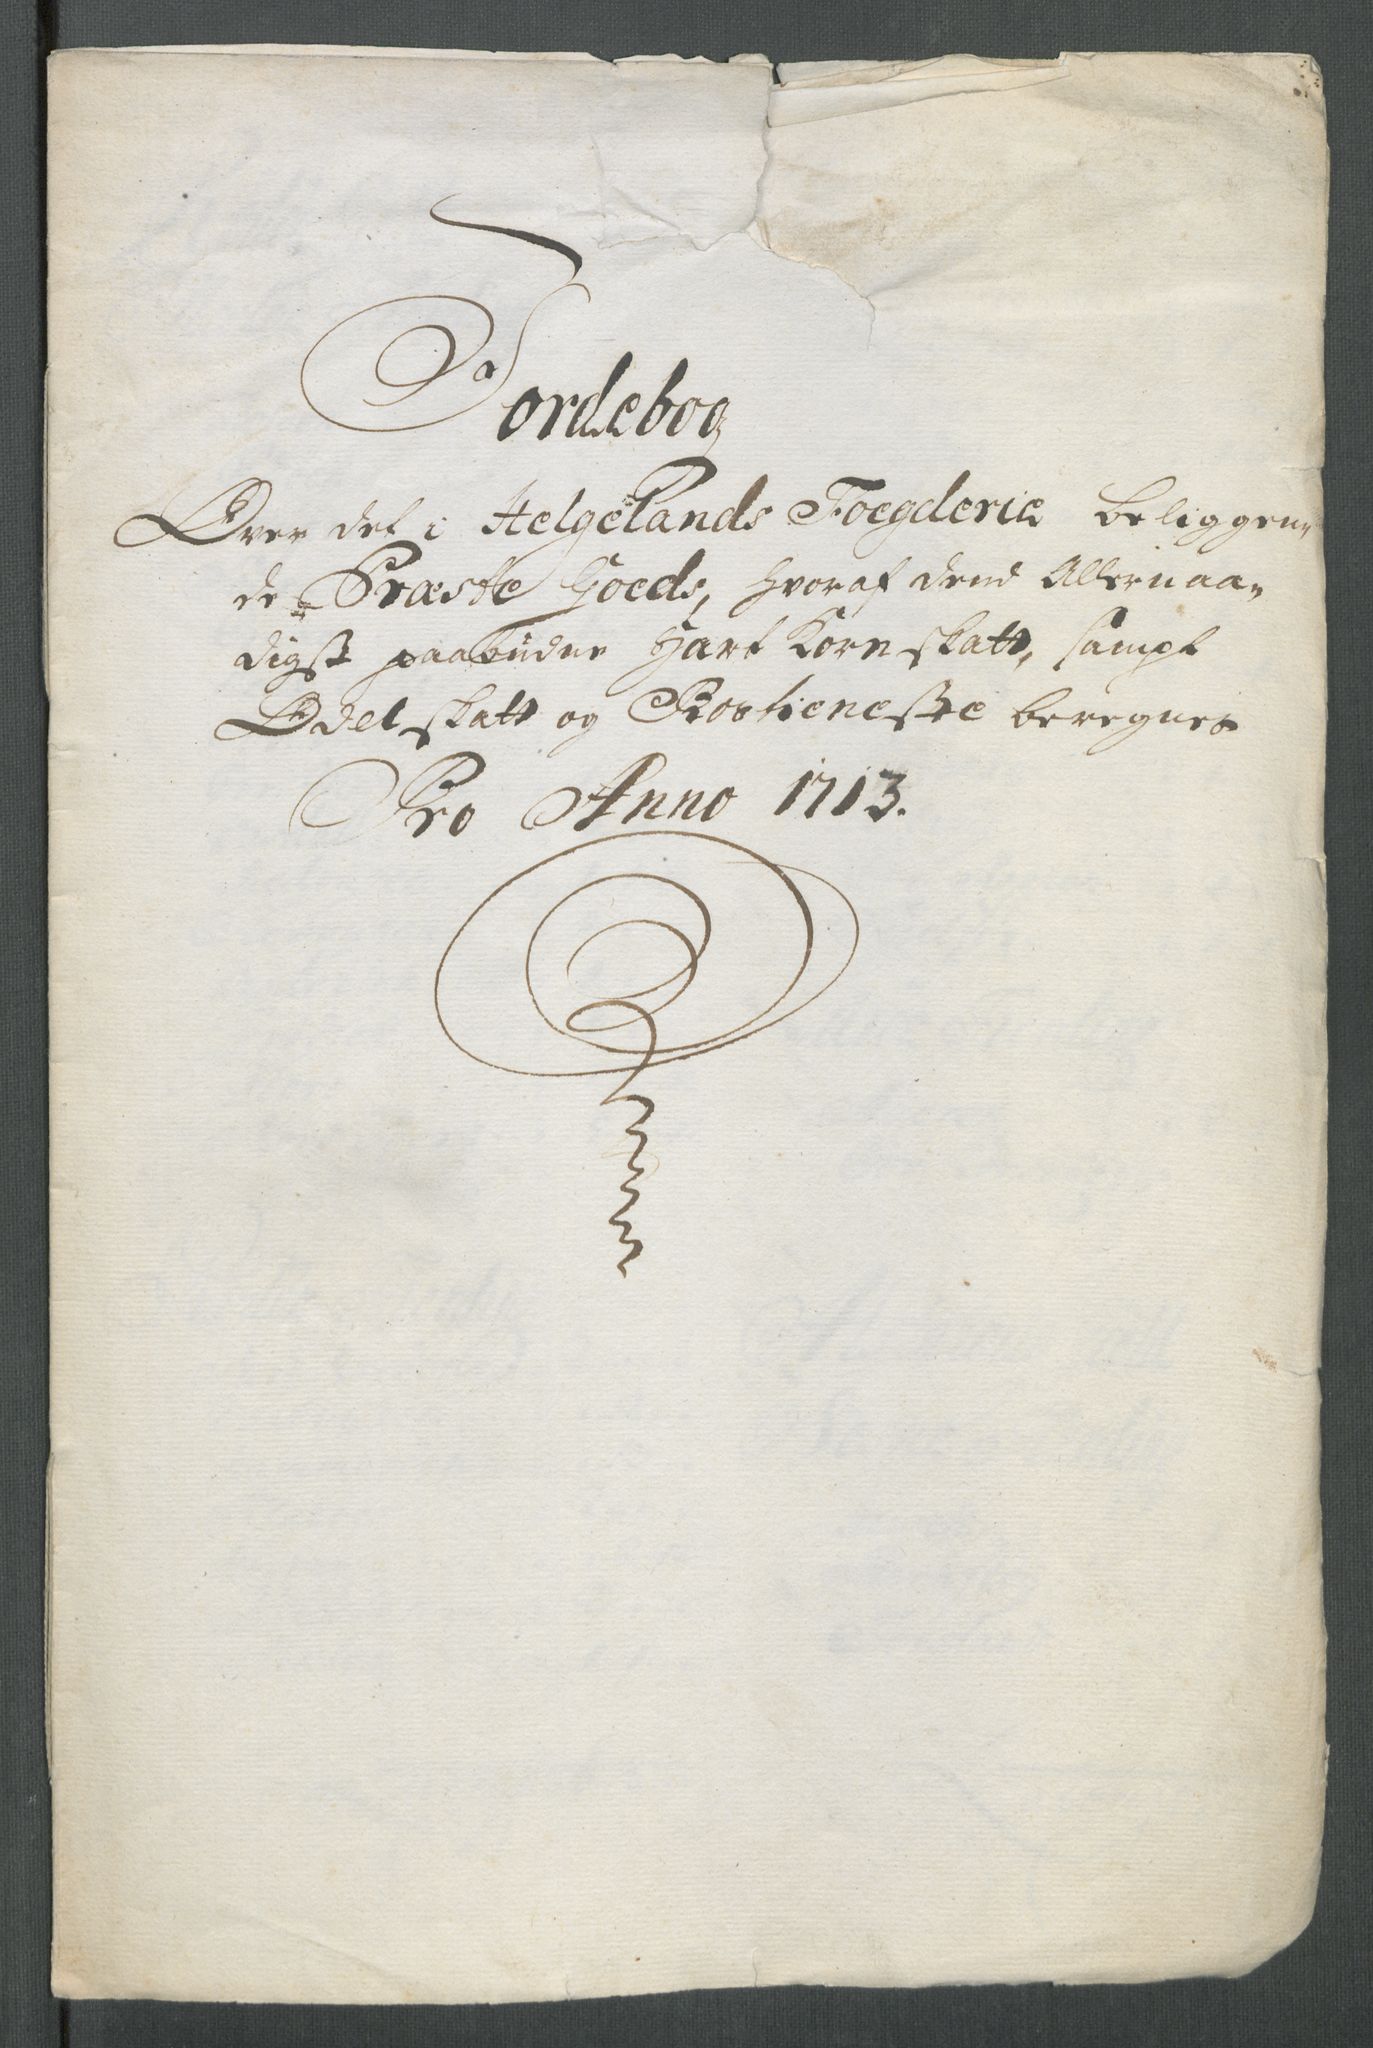 Jordebog
Over det i Helgelands Foegderie beliggen-
de Præste Goeds, hvoraf dend Allernaa-
digst paabudne Hart Korn skatt, sampt
Odel skatt og Rostieneste beregnes
Pro Anno 1713.